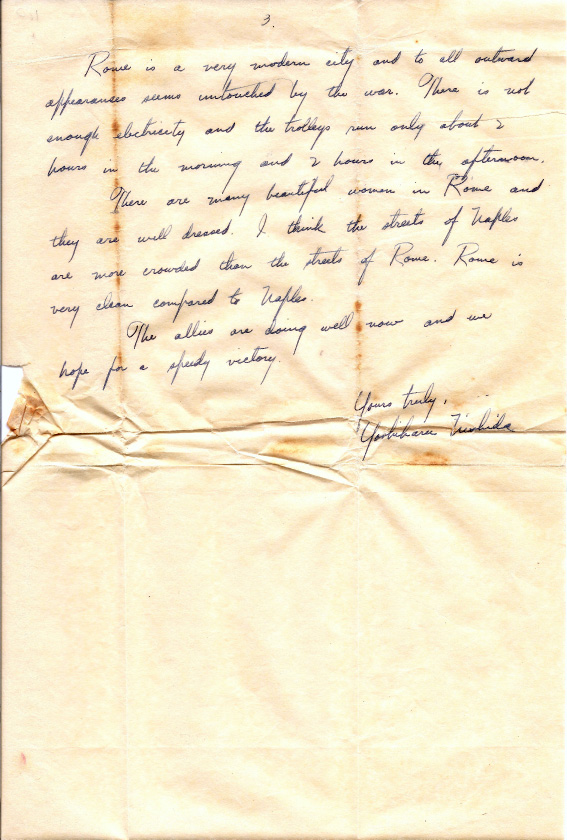 3.
Rome is a very modern city and to all outward
appearances seems untouched by the war. There is not
enough electricity and the trolleys run only about 2
hours in the morning and 2 hours in the afternoon.
There are many beautiful women in Rome and
they are well dressed. I think the streets of Naples
are more crowded than the streets of Rome. Rome is
very clean compared to Naples.
The allies are doing well now and we
hope for a speedy victory.
Yours truly,
Yoshiharu